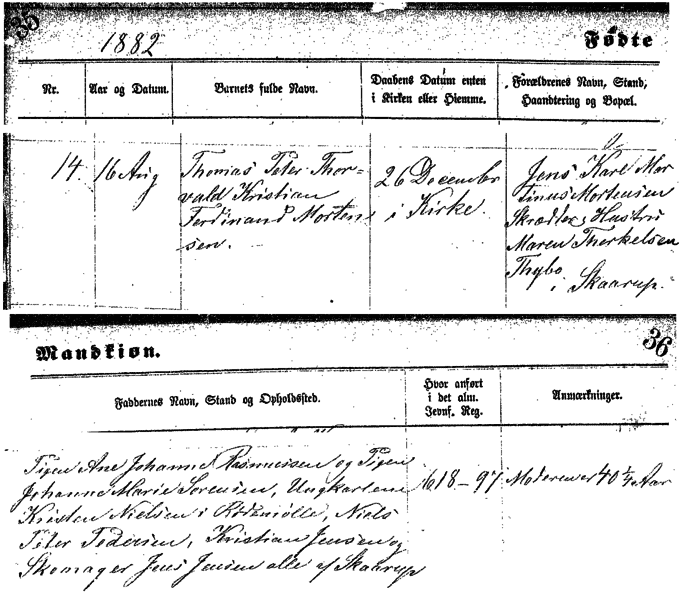 35
1882
Fødte
Nr.
Aar og Datum.
Barnets fulde Navn.
Daabens Datum enten
i Kirken eller Hjemme.
Forældrenes Navn, Stand,
Haandtering og Bopæl.
14.
16 Aug
Thomas Peter Thor-
vald Kristian
Ferdinand Morten-
sen.
26 December
i Kirke.
Jens Karl Mor
tinus Mortensen
Skrædder, Hustru
Maren Therkelsen
Thybo
i Skaarup.
Mandkiøn.
36
Faddernes Navn, Stand og Opholdssted.
Hvor anført
i det alm.
Jevnf. Reg.
Anmærkninger.
Pigen Ane Johanne Rasmussen og Pigen
Johanne Marie Sørensen, Ungkarlene
Kristen Nielsen i Rödemölle, Niels
Peter Pedersen, Kristian Jensen og
Skomager Jens Jensen alle af Skaarup
618-97
Moderen er 40 1/4 Aar